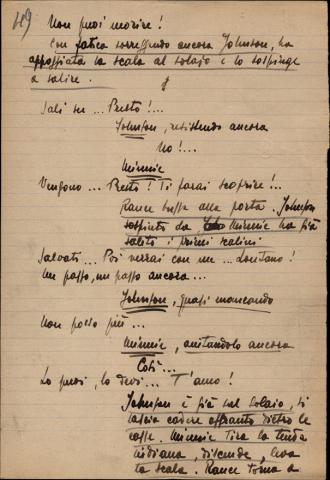 Non puoi morire!
Con fatica sorreggendo ancora Johnson, ha
appoggiata la scala al solaio e lo sospinge
a salire.
Sali su... Presto!...
Johnson, resistendo ancora
No!...
Minnie
Vengono... Presto! Ti farai scoprire!...
Rance bussa alla porta. Johnson
sospinto da Minnie ha già
salito i primi scalini
Salvati... Poi verrai con me... Lontano!
Un passo, un passo ancora...
Johnson, quasi mancando
Non posso più...
Minnie, aiutandolo ancora
Così...
Lo puoi, lo devi... T'amo!
Johnson è già sul solaio, si
lascia cadere affranto dietro le
casse. Minnie tira la tenda
indiana, discende, leva
la scala. Rance torna a